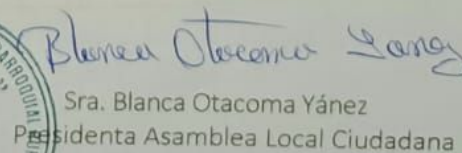 Blanca Otacoma Yánez
Sra. Blanca Otacoma Yánez
Presidenta Asamblea Local Ciudadana
ARROQUIAL